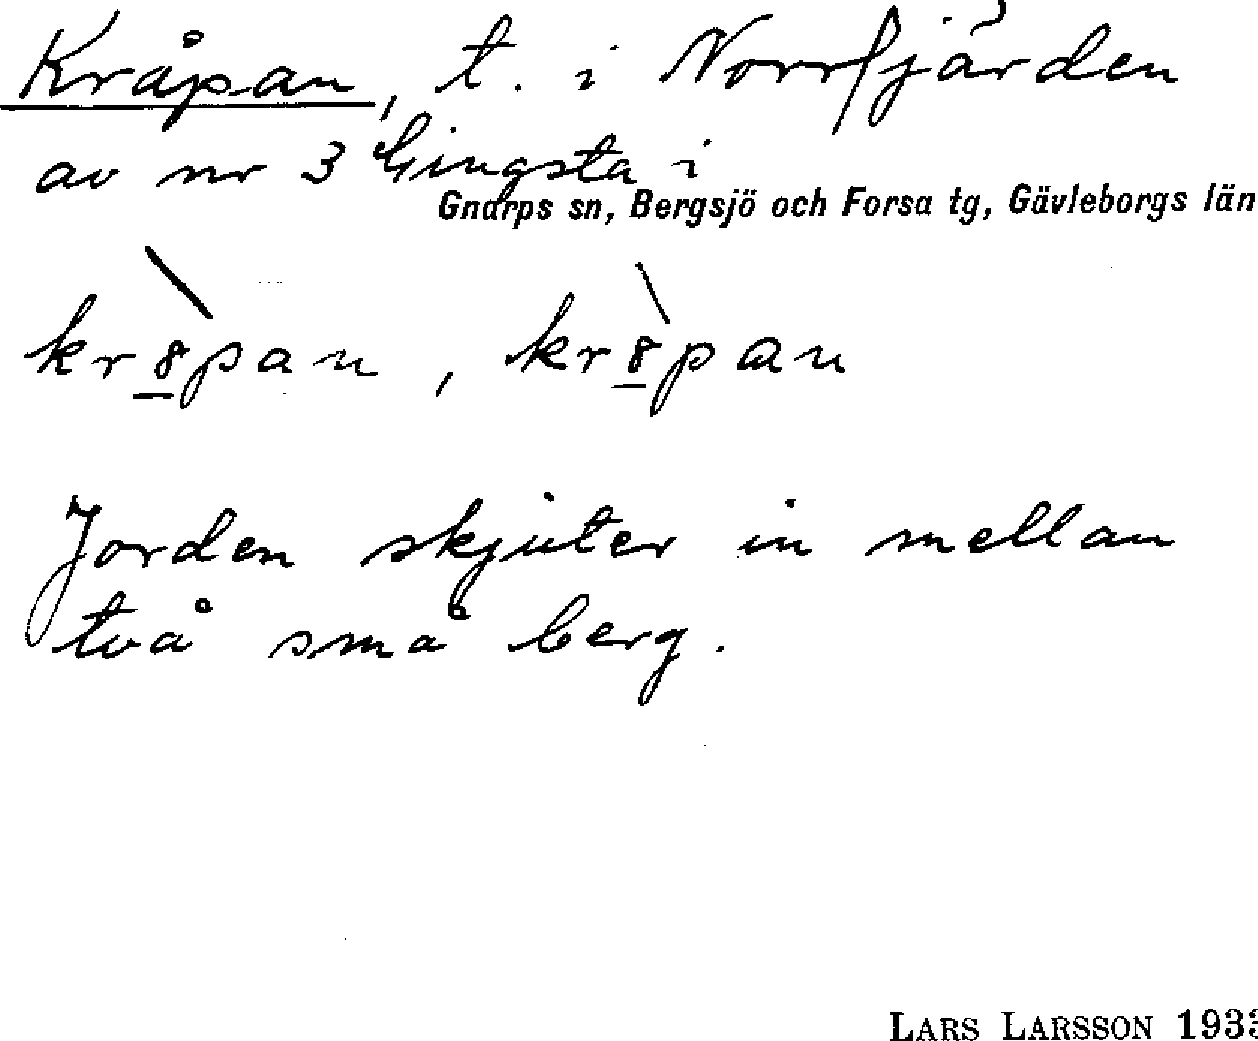 Kråpan, t. i Norrfjärden
av nr 3 Gingsta i
Gnarps sn, Bergsjö och Forsa tg, Gävleborgs län
kr8̲̀pan, kr8̲̀pan
Jorden skjuter in mellan
två små berg.
LARS LARSSON 193